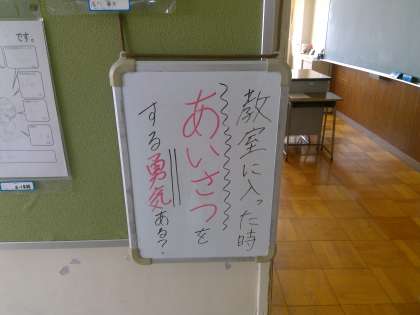 教室に入った時
あいさつを
する勇気ある?
です。